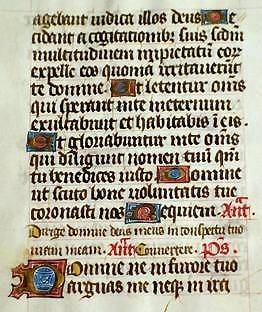 agebant iudica illos deus De
cidant a cogitationibȝ suis scdm
multitudinem impietatū eorȝ
expelle eos quoniā irritauerūt
te domine Et letentur om̄s
qui sperant in te in eternum
exultabunt et habitabis ī eis.
Et gloriabuntur in te om̄s
qui diligunt nomen tuū qm̄
tu benedices iusto Domine
ut scuto bone voluntatis tue
coronasti nos Requiem. Ant.
Dirige domine deus meus in conspectu tuo
uiam meam. Ant Conuertere. Ps.
Domine ne in furore tuo
arguas me neqȝ in ira